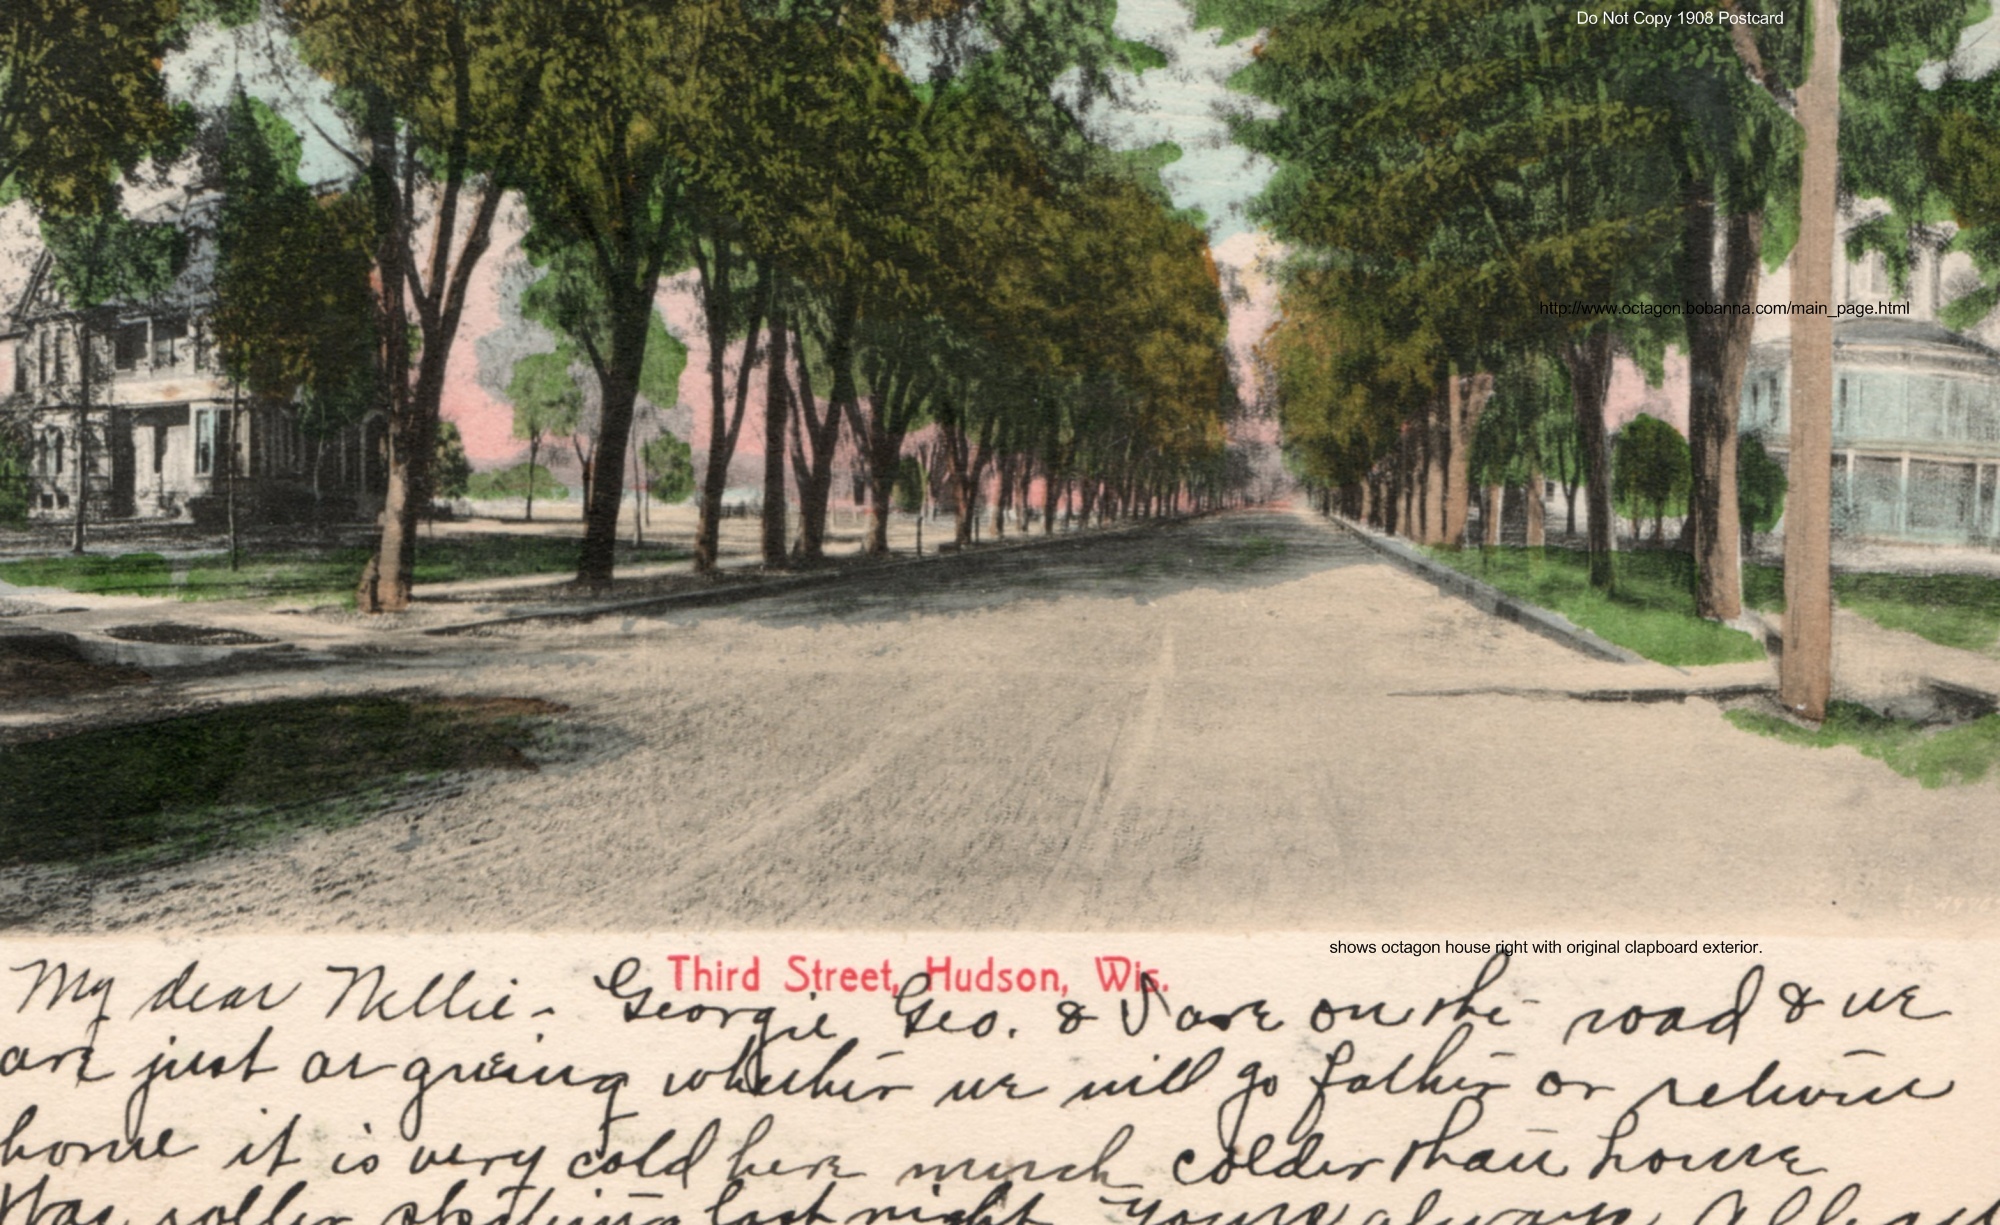 Do Not Copy 1908 Postcard
http://www.octagon.bobanna.com/main_page.html
shows octagon house right with original clapboard exterior.
Third Street, Hudson, Wis.
My dear Nellie - Georgie Geo. & I are on the road & we
are just argueing whether we will go father or return
home it is very cold here much colder than home
Was roller skating last night Yours always